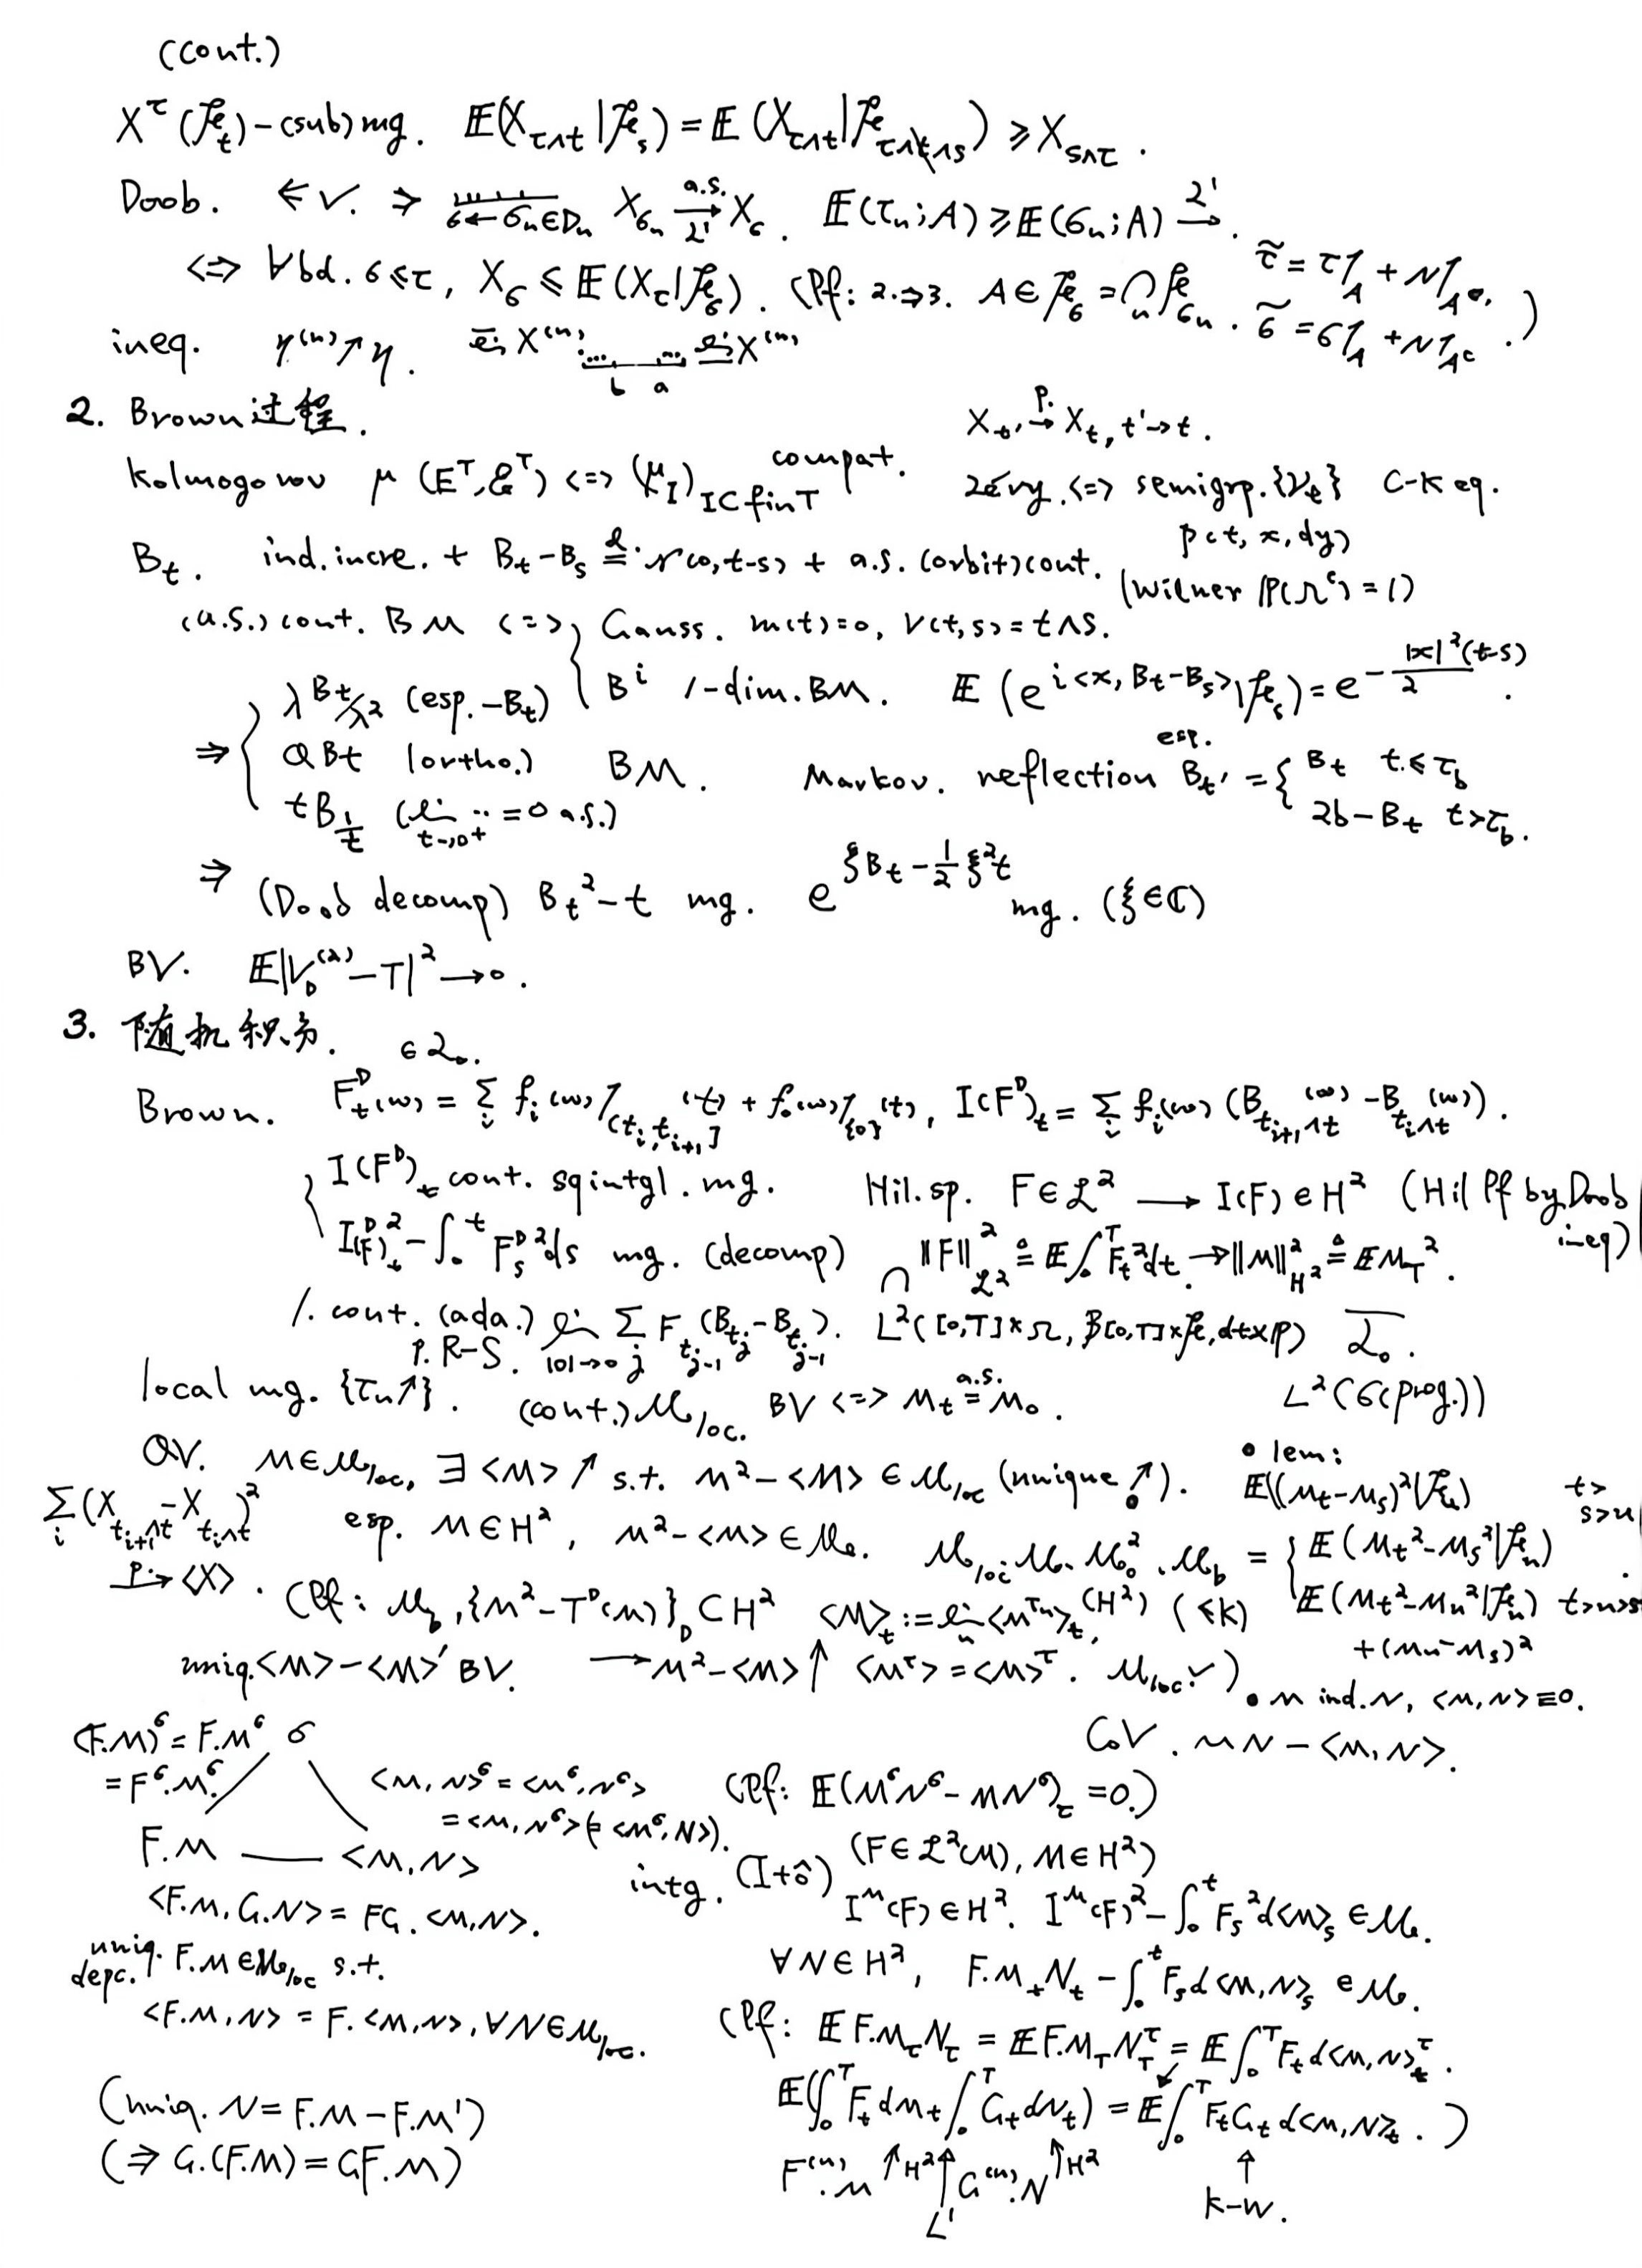 (cont.)
X^τ (ℱ_t)-(sub)mg. 𝔼(X_{τ∧t}|ℱ_s) = 𝔼(X_{τ∧t}|ℱ_{τ∧t∧s}) ≥ X_{s∧τ}.
Doob. ⇐ ✓. ⇒ σ←σ_n∈D_n X_{σ_n} →^{a.s.}_{L^1} X_σ. 𝔼(τ_n;A) ≥ 𝔼(σ_n;A) →^{L^1}.
⇔ ∀bd. σ≤τ, X_σ ≤ 𝔼(X_τ|ℱ_σ). (Pf: 2.⇒3. A∈ℱ_σ = ∩_n ℱ_{σ_n}. τ̃ = τ1_A + N1_{A^c}, σ̃ = σ1_A + N1_{A^c}.)
ineq. η^{(n)}↗η. lim X^{(n)} b a lim X^{(n)}
2. Brown过程.
X_{t'} →^{P.} X_t, t'→t.
Kolmogorov μ (E^T, ℰ^T) <=> (μ_I)_{I⊂fin T} compat.
Lévy. <=> semigrp. {ν_t} C-K eq.
p(t, x, dy)
B_t. ind. incre. + B_t-B_s =^d 𝒩(0,t-s) + a.s. (orbit) cont. (Wiener ℙ(Ω^c)=1)
(a.s.) cont. BM <=> { Gauss. m(t)=0, V(t,s)=t∧s.
B^i 1-dim. BM. 𝔼(e^{i<x, B_t-B_s>}|ℱ_s) = e^{-|x|^2(t-s)/2}.
⇒ { λB_{t/λ^2} (esp. -B_t)
QB_t (ortho.) BM.
tB_{1/t} (lim_{t→0+} ‥ = 0 a.s.)
Markov. esp. reflection B_t' = { B_t t≤τ_b
2b-B_t t>τ_b.
⇒ (Doob decomp) B_t^2-t mg. e^{ξB_t-½ξ^2t} mg. (ξ∈ℂ)
BV. 𝔼|V_D^{(2)}-T|^2→0.
3. 随机积分.
∈ℒ_0.
Brown. F_t^D(ω) = Σ_i f_i(ω)1_{(t_i,t_{i+1}]}(t) + f_0(ω)1_{{0}}(t), I(F^D)_t = Σ_i f_i(ω)(B_{t_{i+1}∧t}(ω) - B_{t_i∧t}(ω)).
{ I(F^D)_t cont. sqintgl. mg. Hil. sp. F∈ℒ^2 → I(F)∈H^2 (Hil Pf by Doob ineq)
I(F^D)_t^2 - ∫_0^t F_s^{D2} ds mg. (decomp) ∩ ‖F‖^2_{ℒ^2} ≙ 𝔼∫_0^T F_t^2dt. → ‖M‖^2_{H^2} ≙ 𝔼M_T^2.
1. cont. (ada.) P. R-S. lim_{|D|→0} Σ_j F_{t_{j-1}}(B_{t_j}-B_{t_{j-1}}). L^2([0,T]×Ω, ℬ[0,T]×ℱ, dt×ℙ) \overline{ℒ_0}.
local mg. {τ_n↑}. (cont.) ℳ_loc. BV <=> M_t =^{a.s.} M_0. L^2(σ(prog.))
QV. M∈ℳ_loc, ∃<M>↑ s.t. M^2-<M>∈ℳ_loc (unique↑).
• lem: 𝔼((M_t-M_s)^2|ℱ_u) t>s>u
Σ_i(X_{t_{i+1}∧t}-X_{t_i∧t})^2 →^{P} <X>.
esp. M∈H^2, M^2-<M>∈ℳ. ℳ_loc. ℳ. ℳ_0^2. ℳ_b = { 𝔼(M_t^2-M_s^2|ℱ_u).
𝔼(M_t^2-M_u^2|ℱ_u) t>u>s
+(M_u-M_s)^2
(Pf: ℳ_b, {M^2-T^D(M)}_D⊂H^2 <M>_t := lim_n <M^{τ_n}>_t, (H^2) (≤K)
uniq. <M>-<M>' BV. → M^2-<M>↑ <M^τ> = <M>^τ. ℳ_loc. ✓)
• M ind. N, <M,N>≡0.
CoV. MN-<M,N>.
(F.M)^σ = F.M^σ σ
= F^σ.M^σ.
<M,N>^σ = <M^σ,N^σ>
= <M,N^σ>(= <M^σ,N>).
(Pf: 𝔼(M^σN^σ-MN^σ)_τ = 0.)
F.M —— <M,N>
<F.M, G.N> = FG.<M,N>.
intg. (Itô) (F∈ℒ^2(M), M∈H^2)
I^M(F)∈H^2. I^M(F)^2-∫_0^t F_s^2d<M>_s∈ℳ.
uniq. depc. ↑ F.M∈ℳ_loc s.t.
<F.M,N> = F.<M,N>, ∀N∈ℳ_loc.
∀N∈H^2, F.M_tN_t-∫_0^t F_sd<M,N>_s∈ℳ.
(Pf: 𝔼F.M_τN_τ = 𝔼F.M_TN_T^τ = 𝔼∫_0^T F_td<M,N>_t^τ.
𝔼(∫_0^T F_tdM_t∫_0^T G_tdN_t) = 𝔼∫_0^T F_tG_td<M,N>_t.)
F^{(n)}.M ↑H^2 ↑L^1 G^{(n)}.N ↑H^2 ↑ K-W.
(uniq. N = F.M-F.M')
(⇒ G.(F.M) = GF.M)